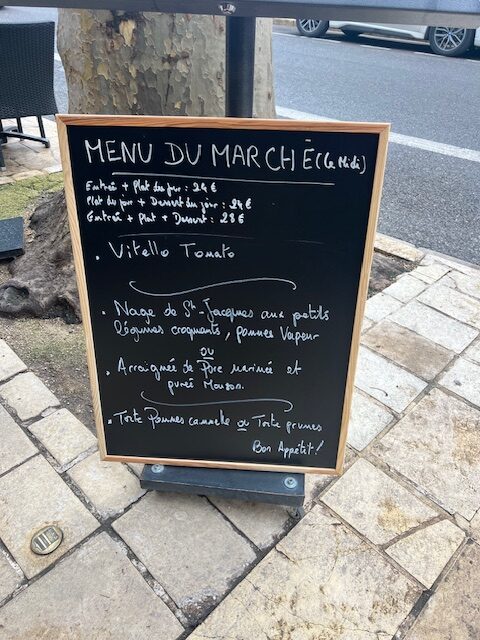 MENU DU MARCHÉ (Le Midi)
Entrée + Plat du jour : 24 €
Plat du jour + Dessert du jour : 24 €
Entrée + Plat + Dessert : 28 €
. Vitello Tomato
. Nage de St-Jacques aux petits
légumes croquants, pommes Vapeur
ou
. Arraignée de Porc marinée et
pureé Maison.
. Tarte Pommes cannelle ou Tarte prunes
Bon Appétit !